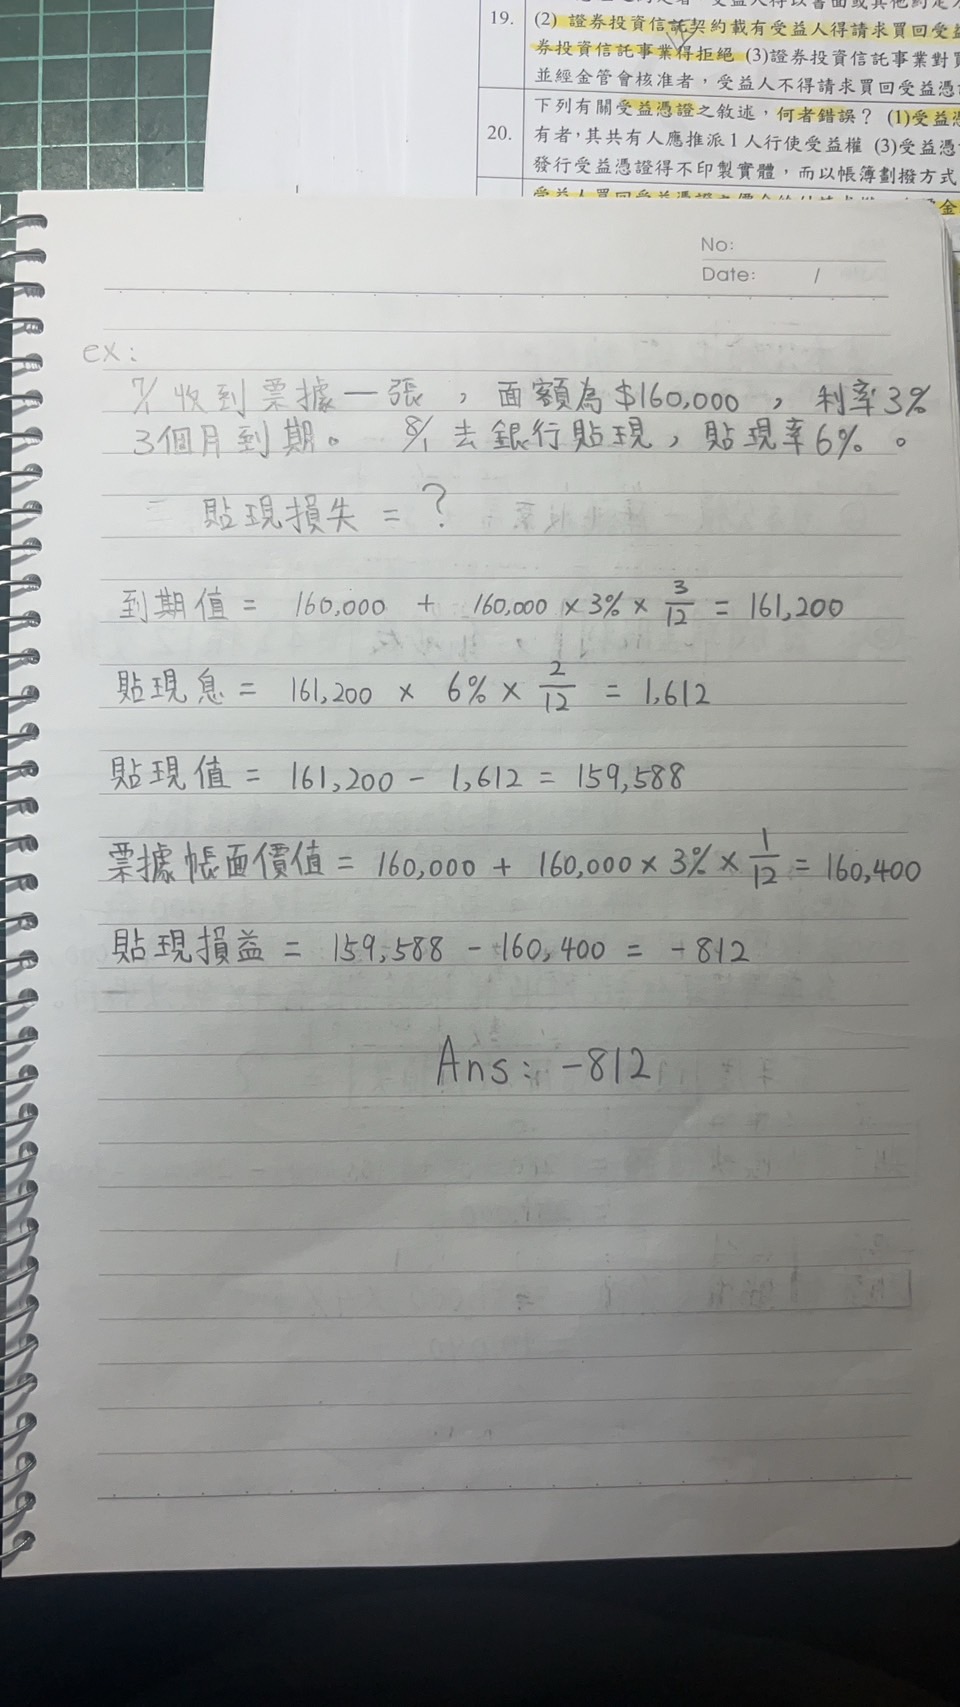 19.
(2) 證券投資信託契約載有受益人得請求買回受益
券投資信託事業得拒絕 (3)證券投資信託事業對買
並經金管會核准者，受益人不得請求買回受益憑
20.
下列有關受益憑證之敘述，何者錯誤？ (1)受益憑
有者，其共有人應推派1人行使受益權 (3)受益憑
發行受益憑證得不印製實體，而以帳簿劃撥方式
No:
Date: /
ex:
7/1 收到票據一張，面額為$160,000，利率3%
3個月到期。 8/1 去銀行貼現，貼現率6%。
貼現損失 = ?
到期值 = 160,000 + 160,000 × 3% × 3/12 = 161,200
貼現息 = 161,200 × 6% × 2/12 = 1,612
貼現值 = 161,200 - 1,612 = 159,588
票據帳面價值 = 160,000 + 160,000 × 3% × 1/12 = 160,400
貼現損益 = 159,588 - 160,400 = -812
Ans: -812